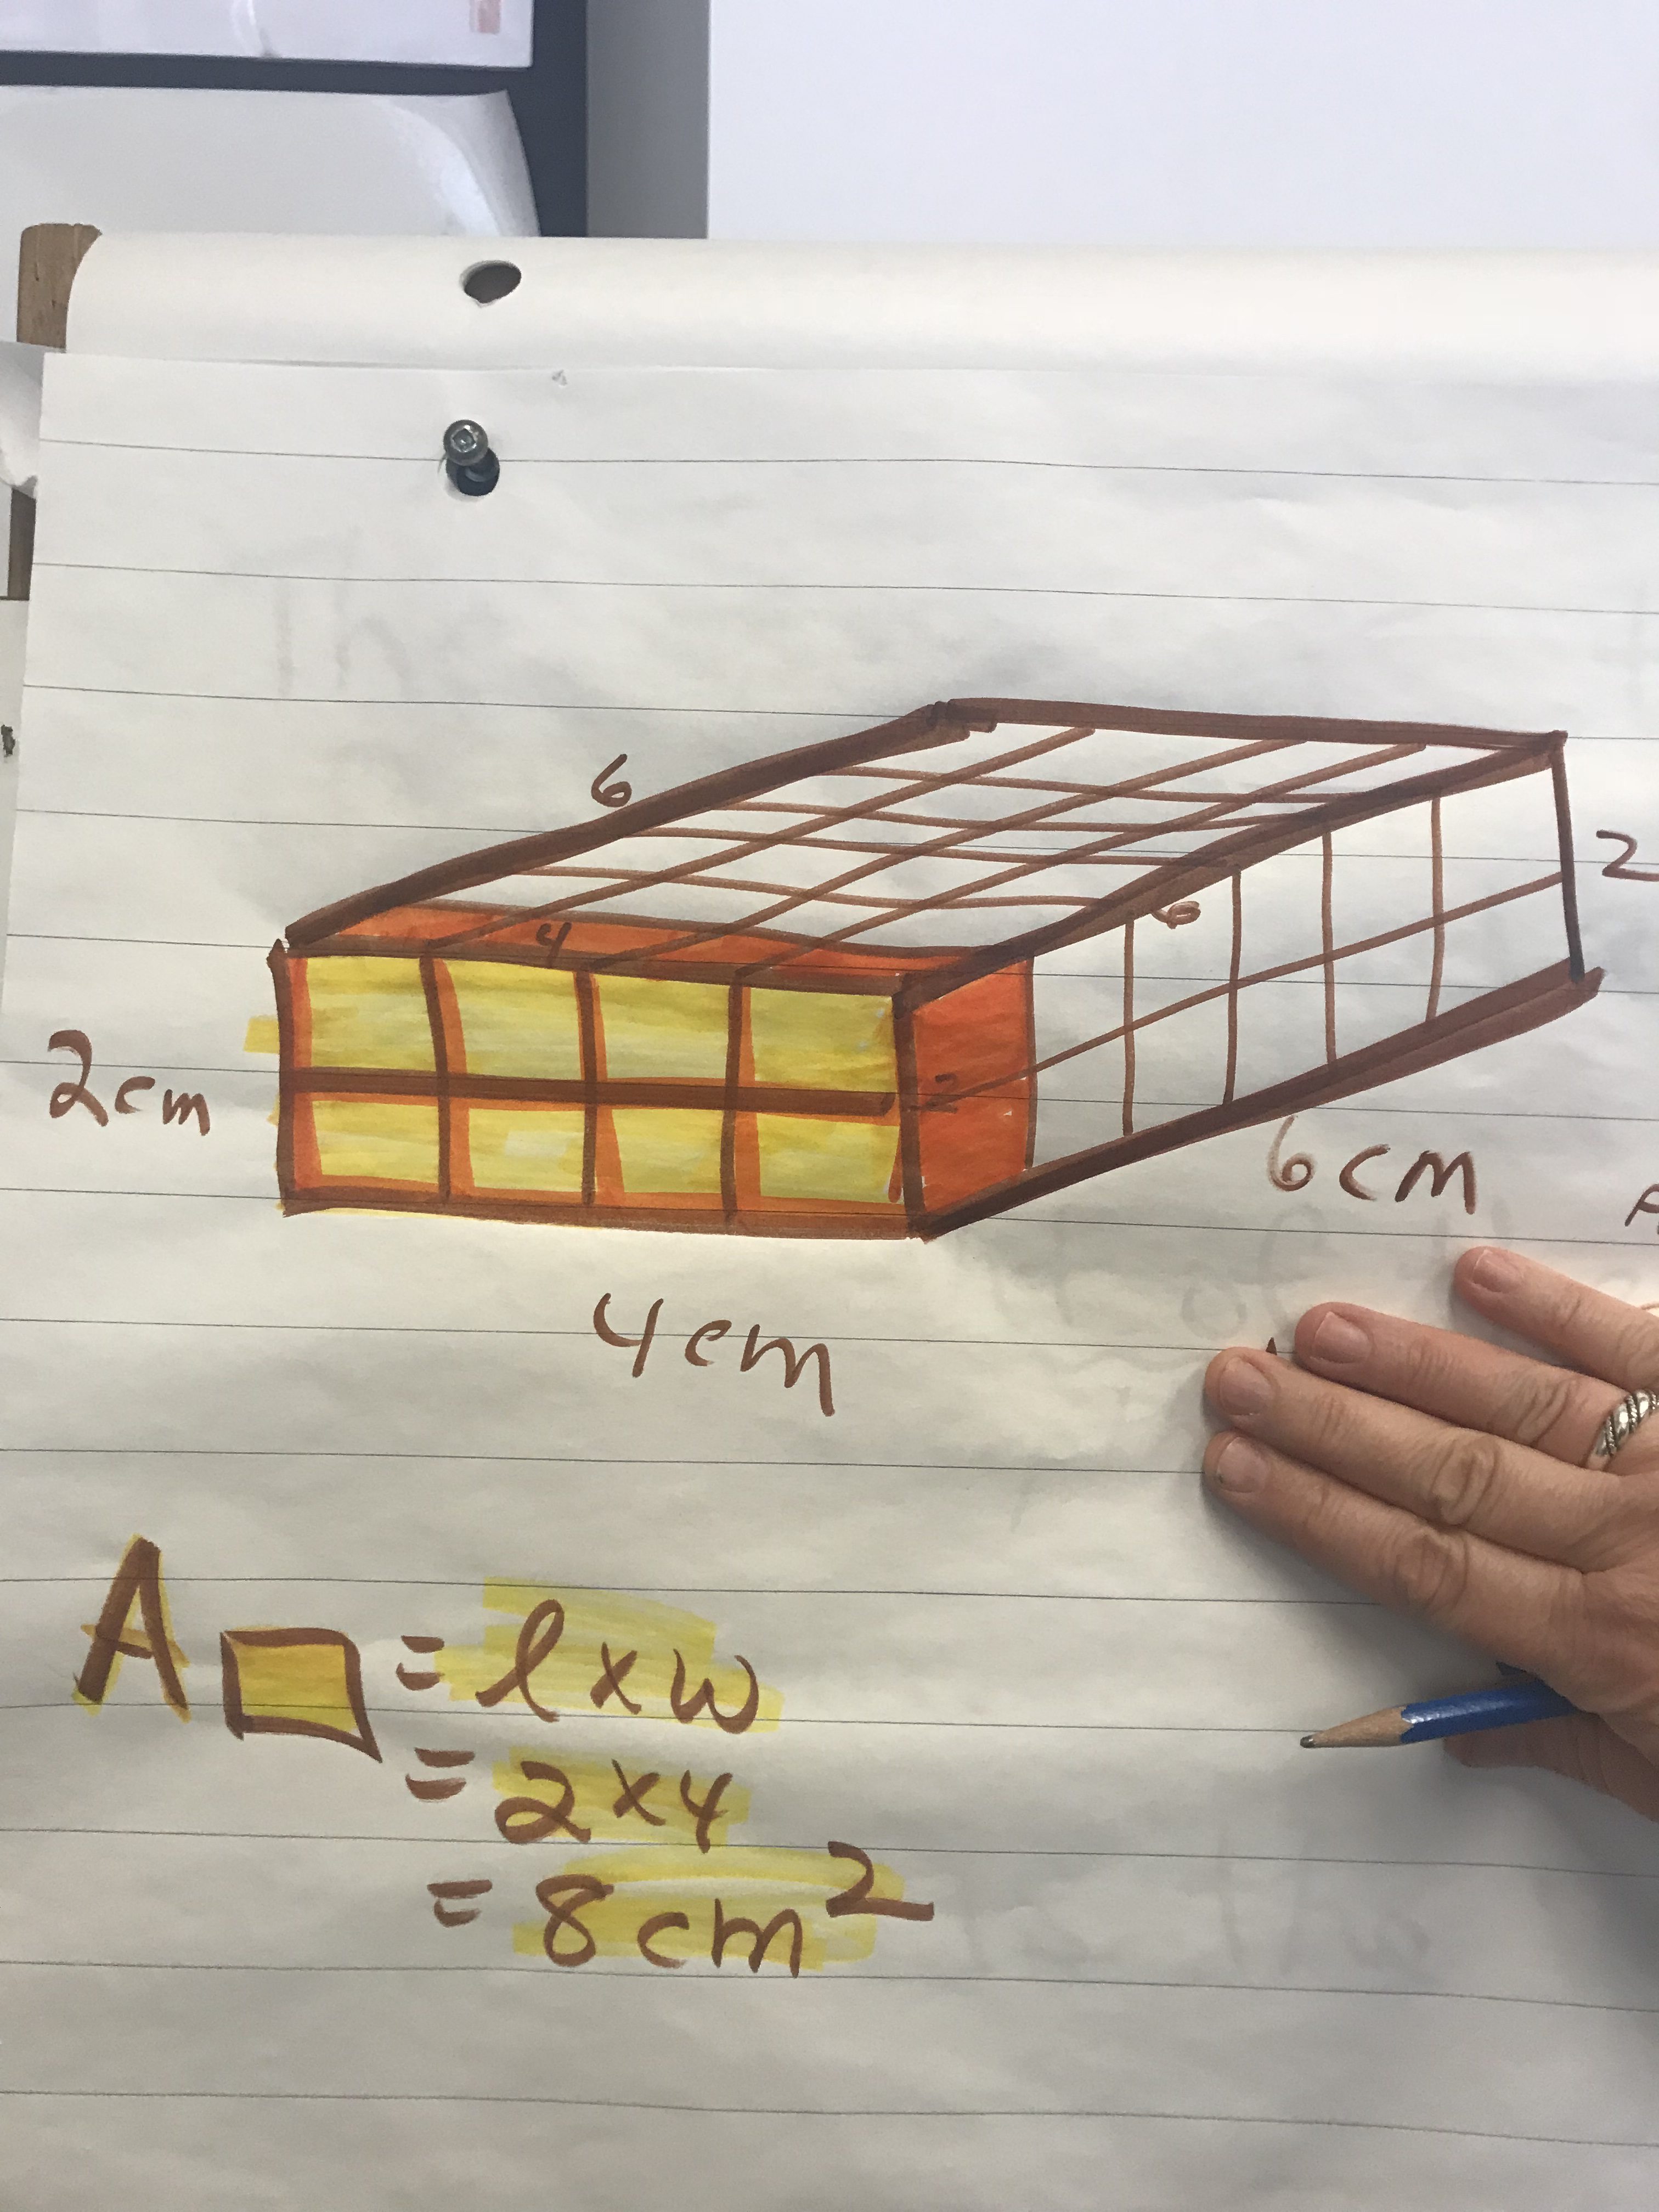 6
2
4
6
2cm
2
6cm
4cm
A = l x w
= 2 x 4
= 8cm²